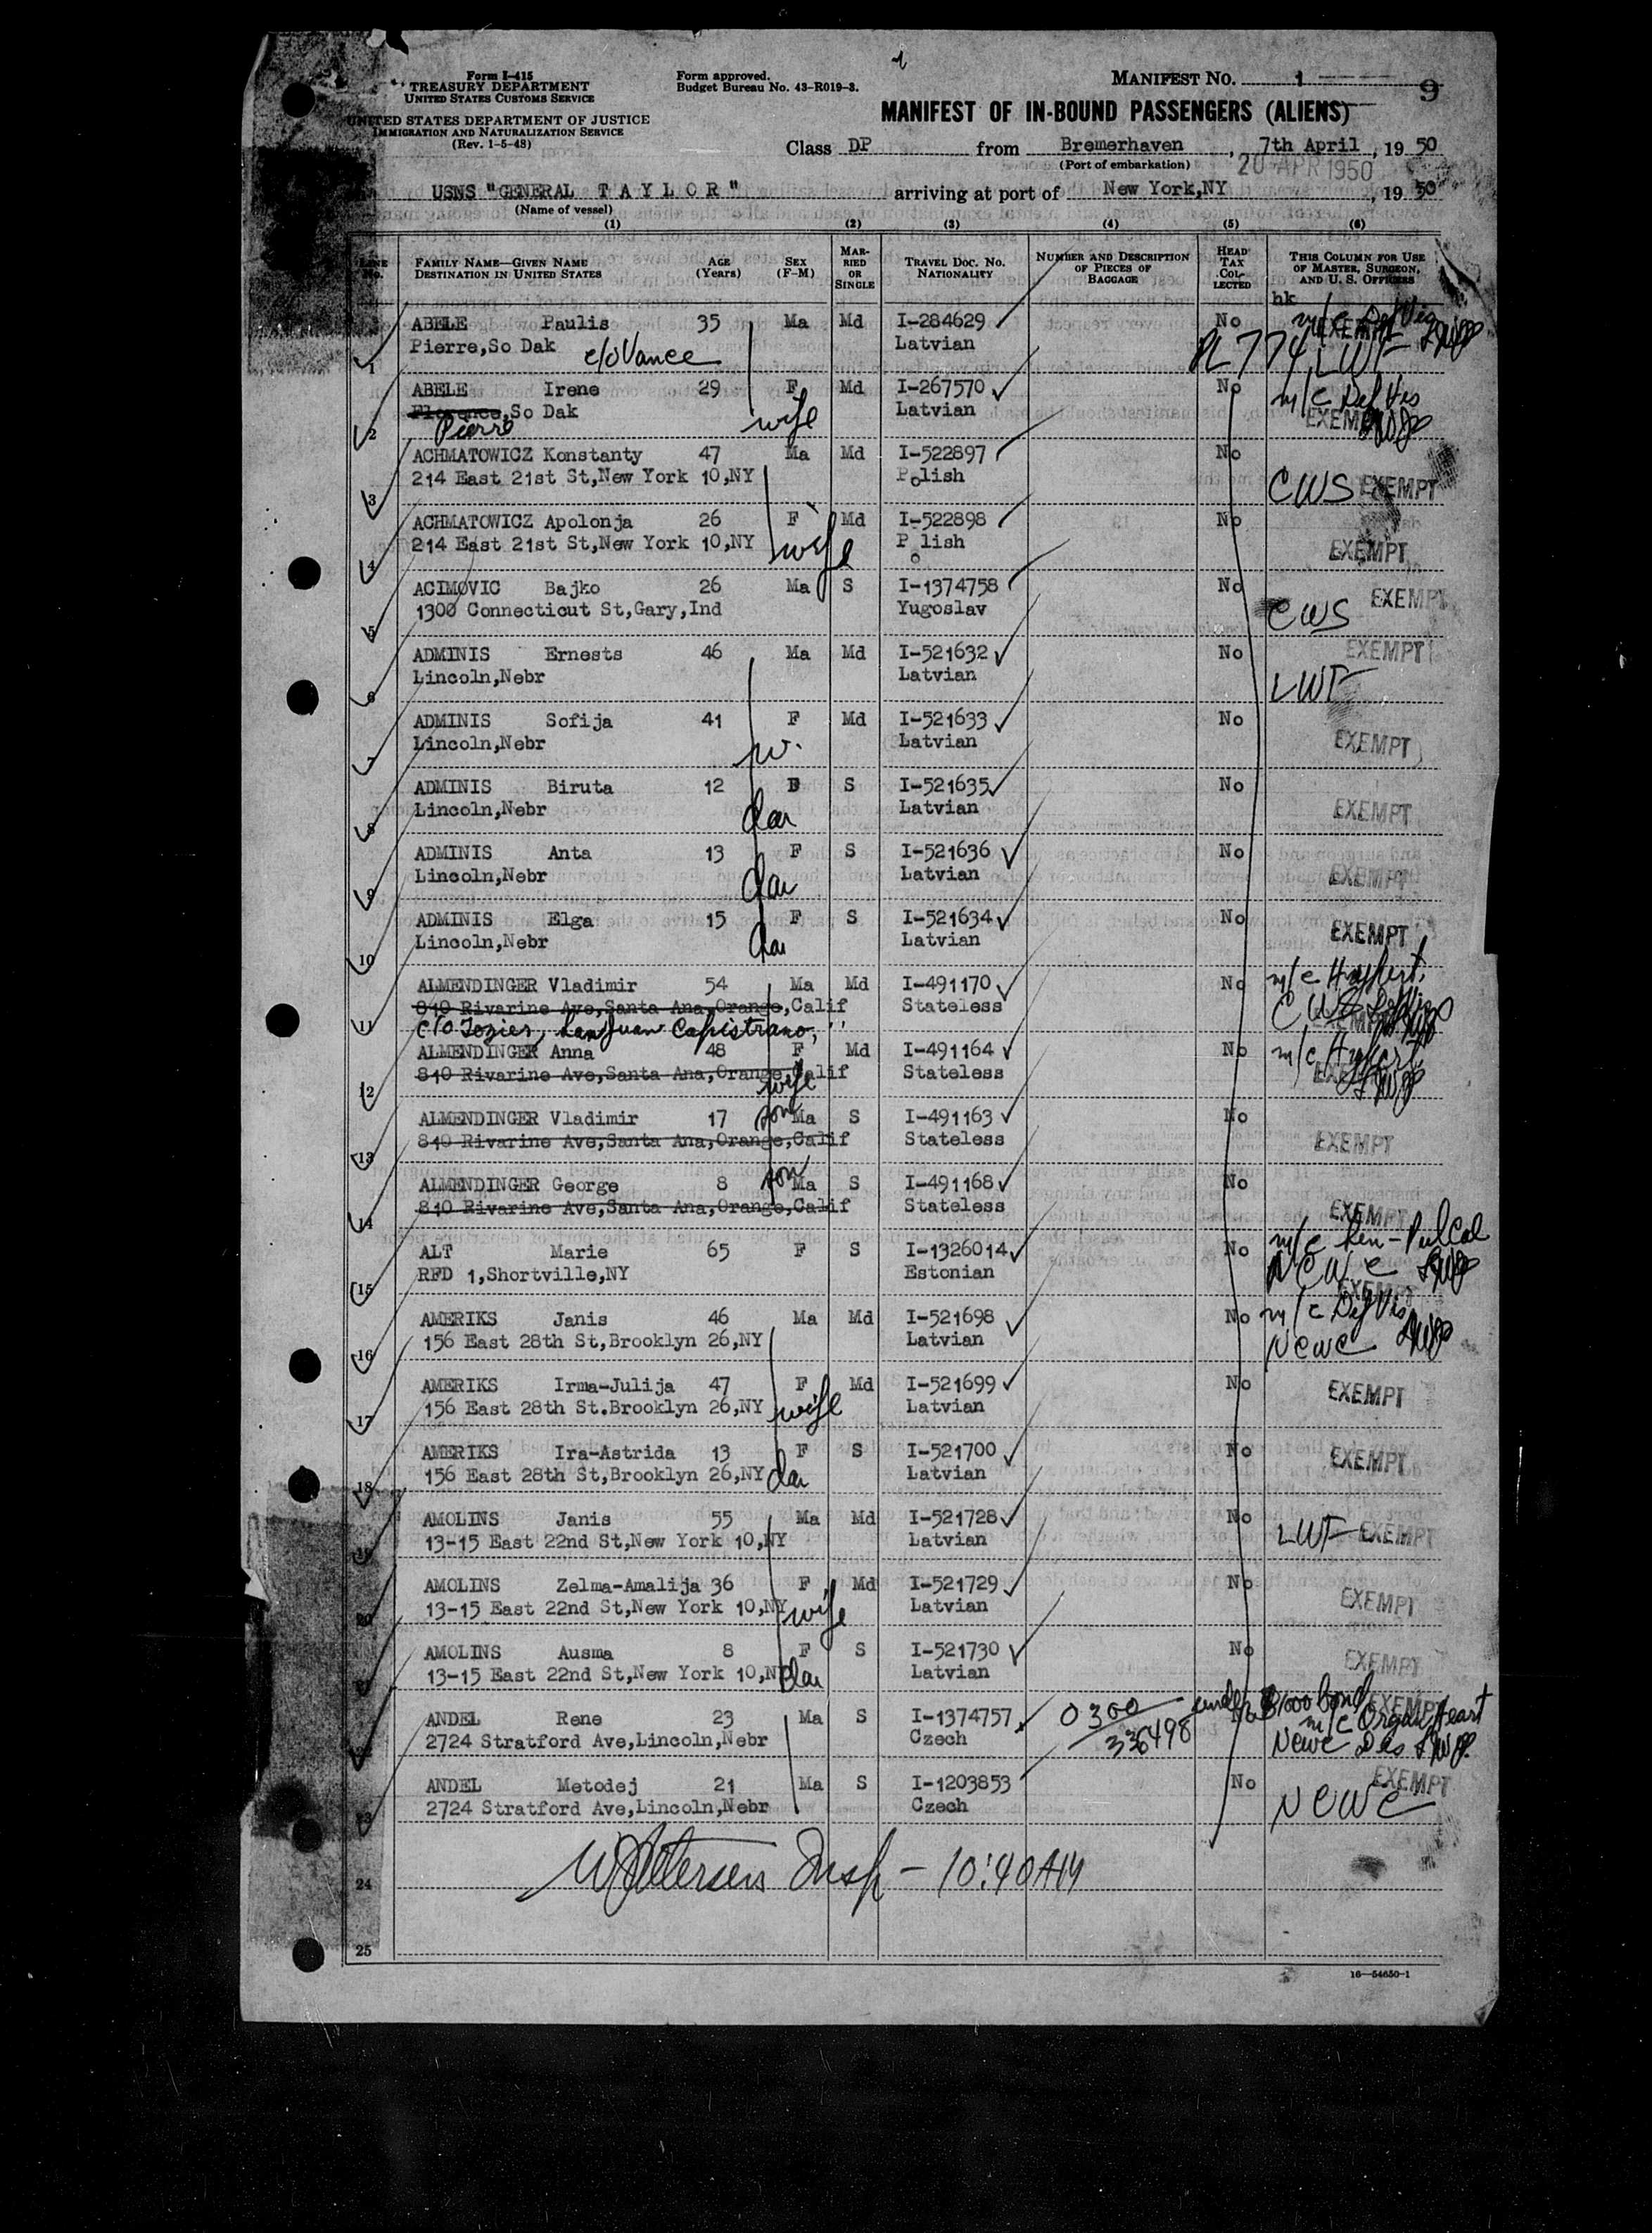 Form I-415
TREASURY DEPARTMENT
UNITED STATES CUSTOMS SERVICE
UNITED STATES DEPARTMENT OF JUSTICE
IMMIGRATION AND NATURALIZATION SERVICE
(Rev. 1-5-48)
Form approved.
Budget Bureau No. 43-R019-3.
MANIFEST NO. 1
9
MANIFEST OF IN-BOUND PASSENGERS (ALIENS)
Class DP from Bremerhaven, 7th April, 1950
(Port of embarkation)
20 APR 1950
USNS "GENERAL TAYLOR" arriving at port of New York,NY, 1950
(Name of vessel)
(1) (2) (3) (4) (5) (6)
LINE No. FAMILY NAME—GIVEN NAME DESTINATION IN UNITED STATES AGE (Years) SEX (F-M) MARRIED OR SINGLE TRAVEL DOC. NO. NATIONALITY NUMBER AND DESCRIPTION OF PIECES OF BAGGAGE HEAD TAX COLLECTED THIS COLUMN FOR USE OF MASTER, SURGEON, AND U. S. OFFICERS
hk
1 ABELE Paulis 35 Ma Md I-284629 No m/c Def Vis EXEMPT
Pierre,So Dak c/o Vance Latvian PL 774 LWF
2 ABELE Irene 29 F Md I-267570 No m/c Def Vis
Florence,So Dak Latvian EXEMPT
Pierre wife
3 ACHMATOWICZ Konstanty 47 Ma Md I-522897 No
214 East 21st St,New York 10,NY Polish CWS EXEMPT
4 ACHMATOWICZ Apolonja 26 F Md I-522898 No
214 East 21st St,New York 10,NY wife Polish EXEMPT
5 ACIMOVIC Bajko 26 Ma S I-1374758 No EXEMPT
1300 Connecticut St,Gary,Ind Yugoslav CWS
6 ADMINIS Ernests 46 Ma Md I-521632 No EXEMPT
Lincoln,Nebr Latvian LWF
7 ADMINIS Sofija 41 F Md I-521633 No
Lincoln,Nebr w. Latvian EXEMPT
8 ADMINIS Biruta 12 F S I-521635 No
Lincoln,Nebr dau Latvian EXEMPT
9 ADMINIS Anta 13 F S I-521636 No
Lincoln,Nebr dau Latvian EXEMPT
10 ADMINIS Elga 15 F S I-521634 No
Lincoln,Nebr dau Latvian EXEMPT
11 ALMENDINGER Vladimir 54 Ma Md I-491170 No m/c
840 Rivarine Ave,Santa Ana,Orange,Calif Stateless CWS
c/o Tozier, San Juan Capistrano, " EXEMPT
12 ALMENDINGER Anna 48 F Md I-491164 No m/c
840 Rivarine Ave,Santa Ana,Orange,Calif wife Stateless EXEMPT
13 ALMENDINGER Vladimir 17 son Ma S I-491163 No
840 Rivarine Ave,Santa Ana,Orange,Calif Stateless EXEMPT
14 ALMENDINGER George 8 son Ma S I-491168 No
840 Rivarine Ave,Santa Ana,Orange,Calif Stateless EXEMPT
15 ALT Marie 65 F S I-1326014 No m/c Sen-
RFD 1,Shortville,NY Estonian NCWC EXEMPT
16 AMERIKS Janis 46 Ma Md I-521698 No m/c Def Vis
156 East 28th St,Brooklyn 26,NY Latvian NCWC
17 AMERIKS Irma-Julija 47 F Md I-521699 No EXEMPT
156 East 28th St.Brooklyn 26,NY wife Latvian
18 AMERIKS Ira-Astrida 13 F S I-521700 No EXEMPT
156 East 28th St,Brooklyn 26,NY dau Latvian
19 AMOLINS Janis 55 Ma Md I-521728 No
13-15 East 22nd St,New York 10,NY Latvian LWF EXEMPT
20 AMOLINS Zelma-Amalija 36 F Md I-521729 No
13-15 East 22nd St,New York 10,NY wife Latvian EXEMPT
21 AMOLINS Ausma 8 F S I-521730 No
13-15 East 22nd St,New York 10,NY dau Latvian EXEMPT
22 ANDEL Rene 23 Ma S I-1374757 0300 No under $1000 bond EXEMPT
2724 Stratford Ave,Lincoln,Nebr Czech m/c Organ Heart
NCWC Dis
23 ANDEL Metodej 21 Ma S I-1203853 No EXEMPT
2724 Stratford Ave,Lincoln,Nebr Czech NCWC
24 Petersen Insp - 10:40AM
25
16-54650-1